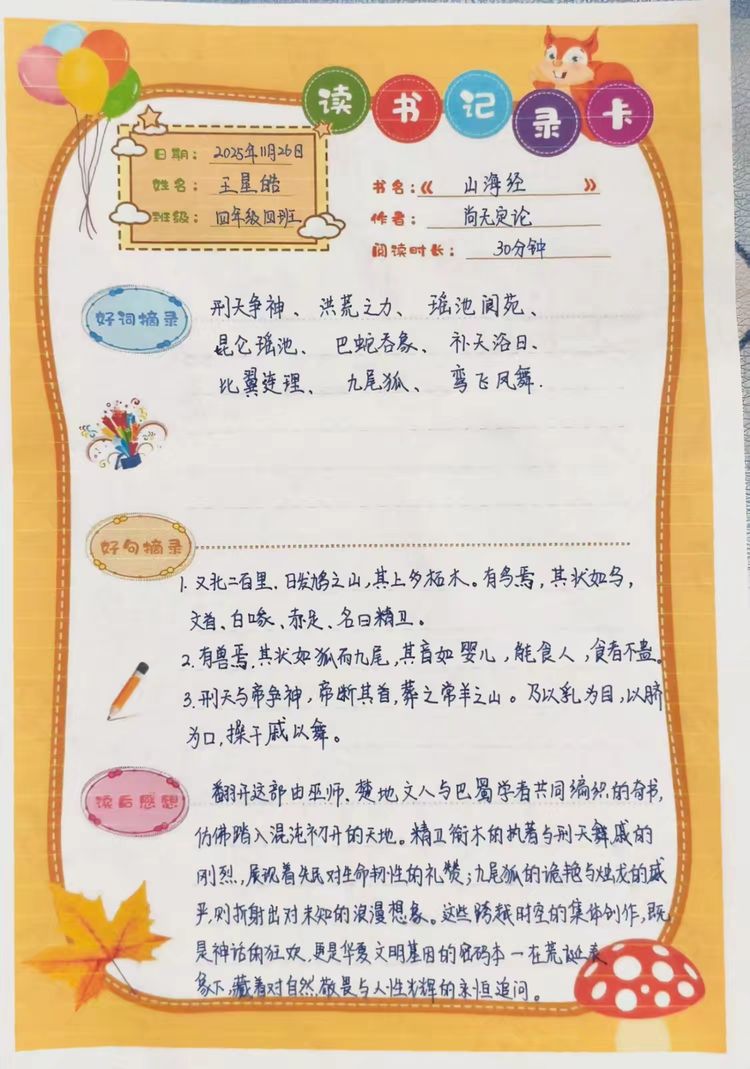 读书记录卡
日期：2025年11月26日
姓名：王星皓
班级：四年级四班
书名：《山海经》
作者：尚无定论
阅读时长：30分钟
好词摘录
刑天争神、洪荒之力、瑶池阆苑、
昆仑瑶池、巴蛇吞象、补天浴日、
比翼连理、九尾狐、鸾飞凤舞.
好句摘录
1. 又北二百里、曰发鸠之山，其上多柘木。有鸟焉，其状如乌，
文首、白喙、赤足、名曰精卫。
2. 有兽焉，其状如狐而九尾，其音如婴儿，能食人，食者不蛊。
3. 刑天与帝争神，帝断其首，葬之常羊之山。乃以乳为目，以脐
为口，操干戚以舞。
读后感想
翻开这部由巫师、楚地文人与巴蜀学者共同编织的奇书，
仿佛踏入混沌初开的天地。精卫衔木的执着与刑天舞戚的
刚烈，展现着先民对生命韧性的礼赞；九尾狐的诡艳与烛龙的威
严，则折射出对未知的浪漫想象。这些跨越时空的集体创作，既
是神话的狂欢，更是华夏文明基因的密码本一在荒诞表
象下，藏着对自然敬畏与人性光辉的永恒追问。